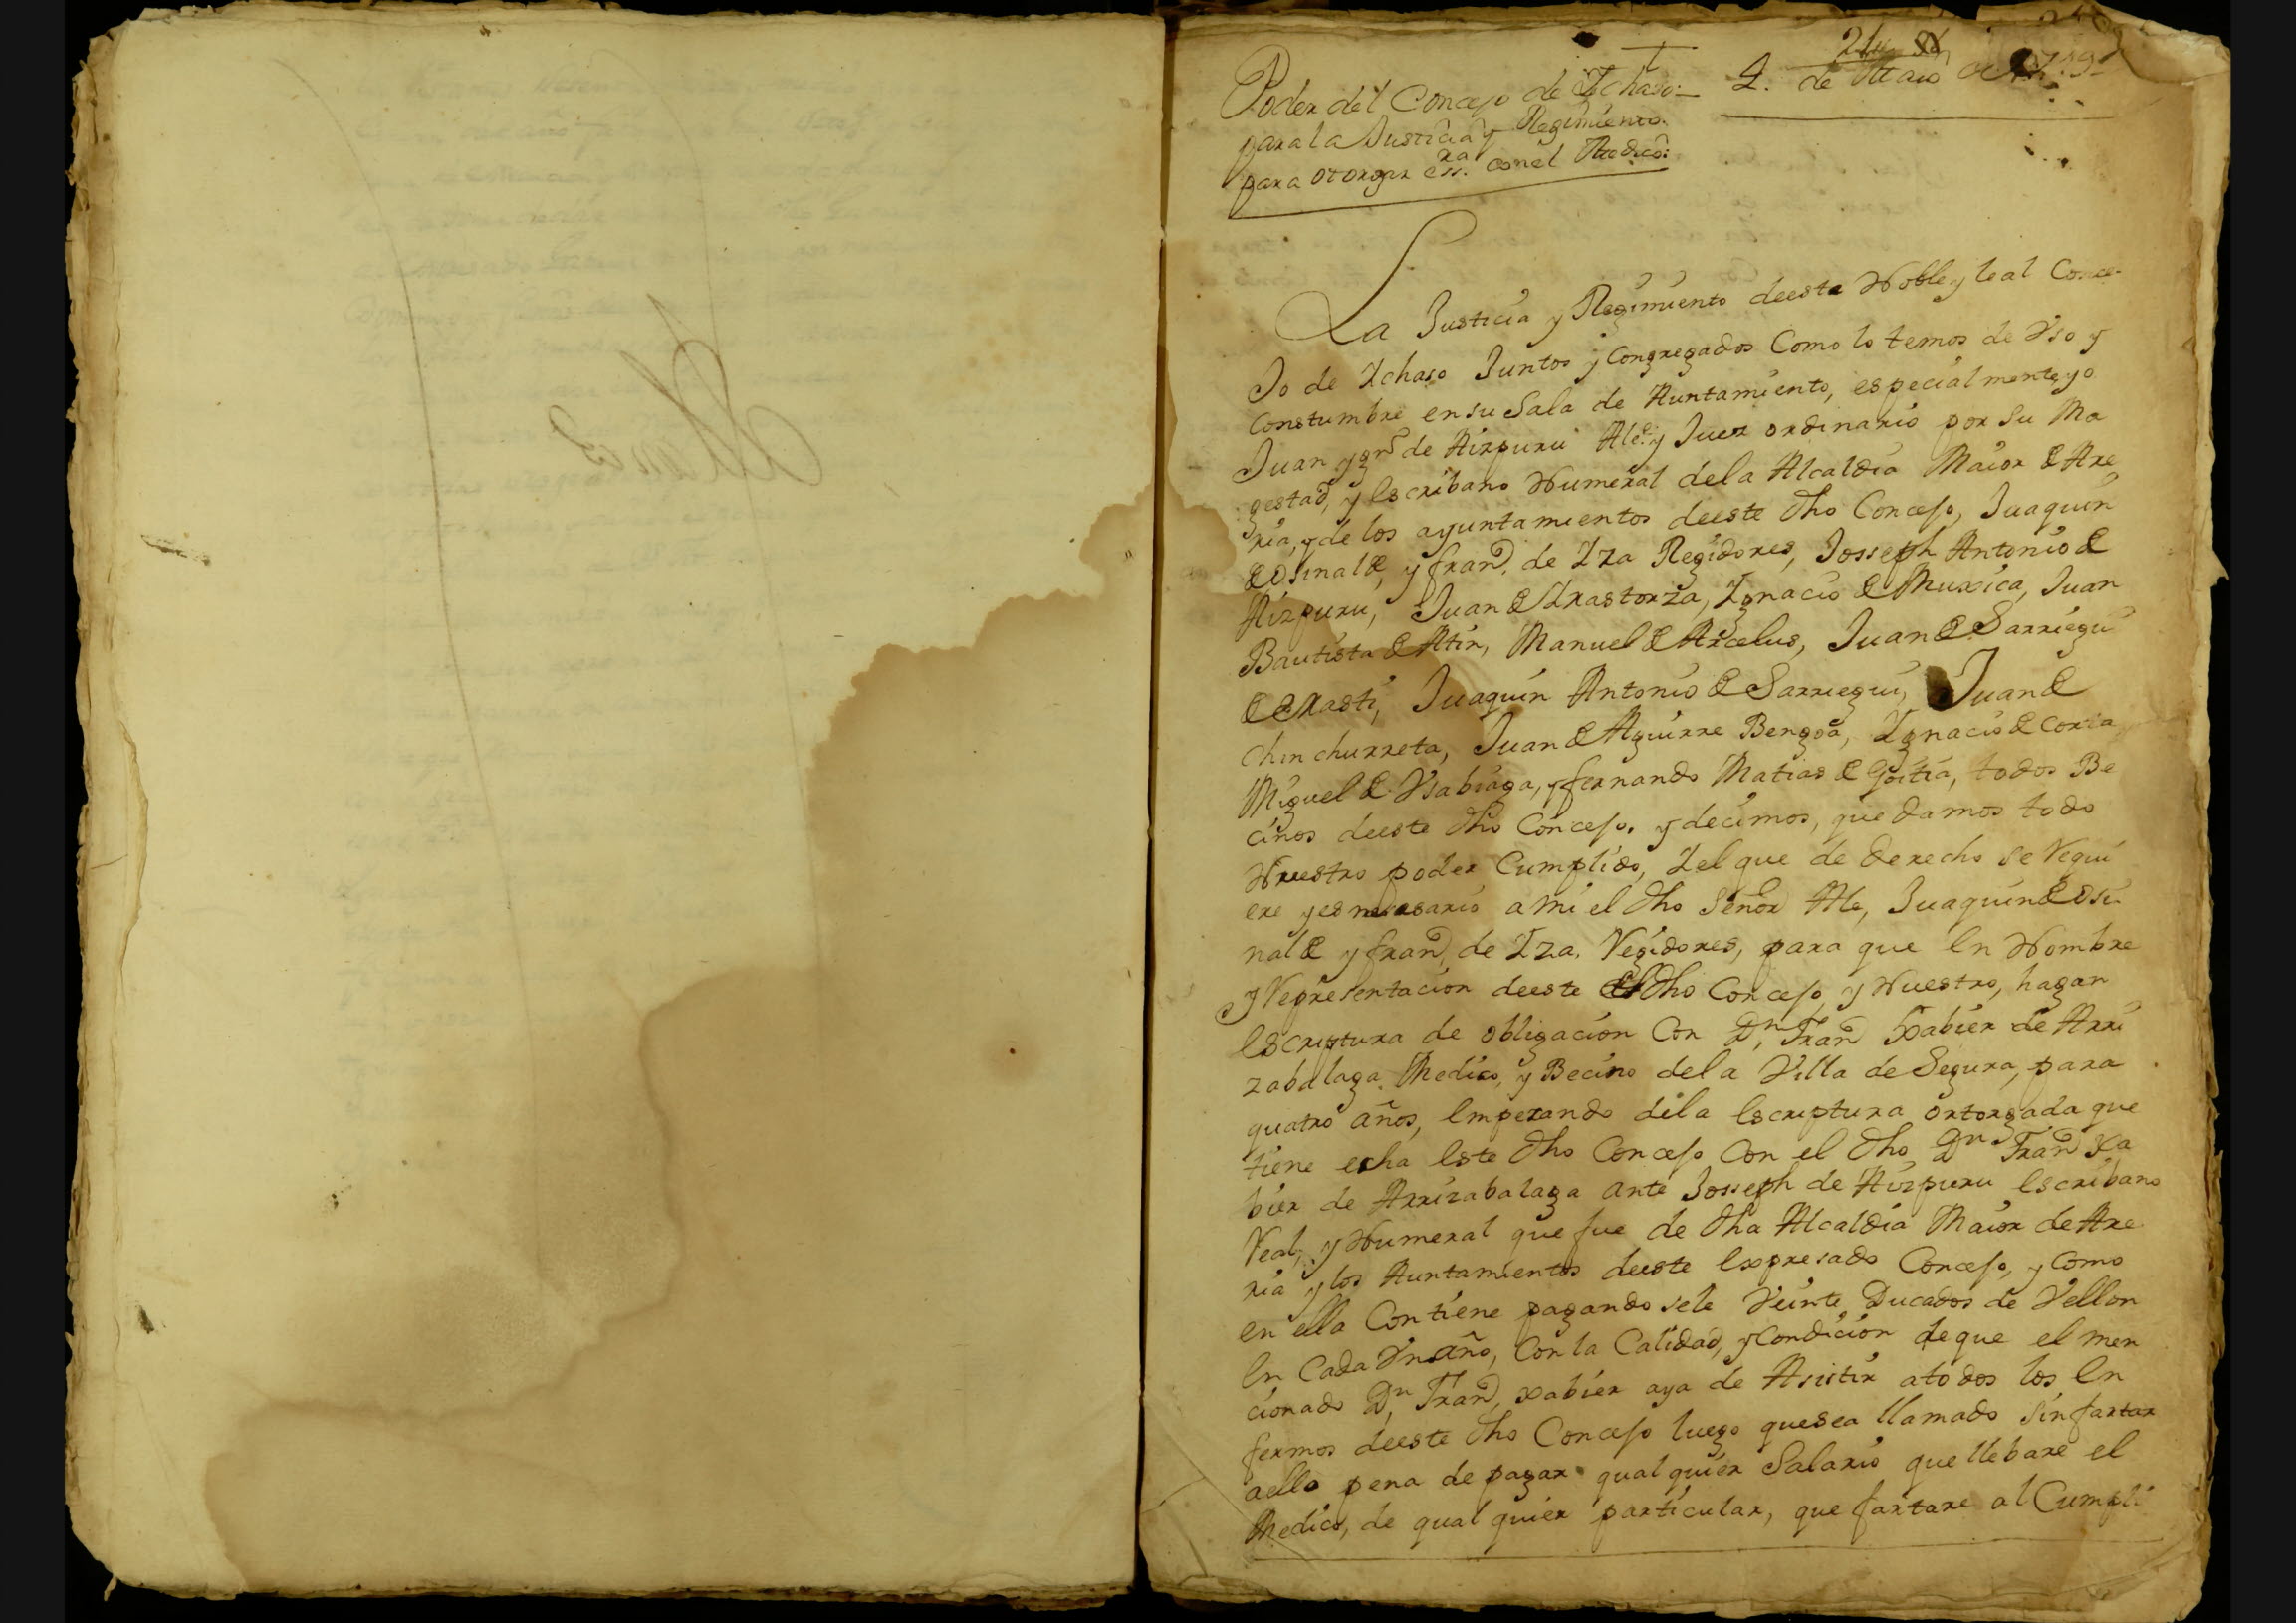 Poder del Concejo de Ichaso:
para la Justicia y Regimiento
para otorgar ess.ra con el Medico:
2. de Maio
La Justicia y Regimiento deeste Noble y leal Conce-
Jo de Ichaso Juntos y Congregados Como lo temos de Vso y
Constumbre en su Sala de Auntamiento, especialmente yo
Juan ygn.º de Aizpuru Alc.e y Juez ordinario por su Ma
gestad, y Escribano Numeral dela Alcaldia Maior de Are
ria, y de los ayuntamientos deeste dho Concejo, Juaquin
de Osinalde, y fran.co de Iza Regidores, Josseph Antonio de
Aizpuru, Juan de Irastorza, Ignacio de Muxica, Juan
Bautista de Atin, Manuel de Arcelus, Juan de Sarriegui
de Erasti, Juaquin Antonio de Sarriegui, Juan de
chinchurreta, Juan de Aguirre Bengoa, Ignacio de Corta,
Miguel de Vsabiaga, y fernando Matias de Goitia, todos Be
cinos deeste dho Concejo. y decimos, que damos todo
Nuestro poder Cumplido, I el que de derecho se Requi
ere y es necesario a mi el dho Señor Alc, Juaquin de Osi
nalde y fran.co de Iza. Regidores, para que En Nombre
y Representacion deeste dho Concejo, y Nuestro, hagan
Escriptura de obligacion Con D.n Fran.co Xabier de Arri
zabalaga Medico, y Becino dela Villa de Segura, para
quatro años, Empezando dela Escriptura ortorgada que
tiene echa Este dho Concejo Con el dho D.n Fran.co Xa
bier de Arrizabalaga ante Josseph de Aizpuru Escribano
Real, y Numeral que fue de dha Alcaldia Maior de Are
ria y los Auntamientos deeste Expresado Concejo, y Como
en ella Contiene pagandosele Veinte Ducados de Vellon
En Cada Vn año, Con la Calidad, y Condicion de que el men
cionado D.n Fran.co xabier aya de Asistir a todos los En
fermos deeste dho Concejo luego que sea llamado Sin fartar
aello pena de pagar qualquier Salario que llebare el
Medico, de qualquier particular, que fartare al Cumpli